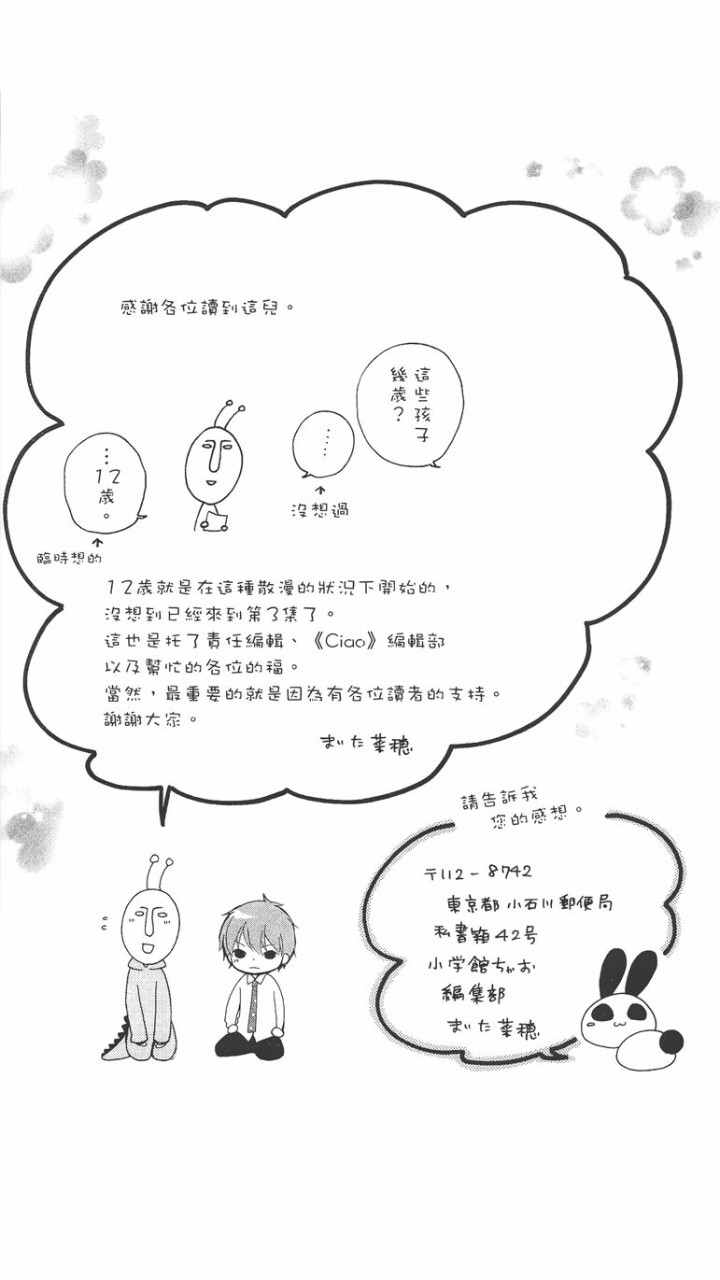 感謝各位讀到這兒。
這些孩子
幾歲？
……
沒想過
…12歲。
臨時想的
12歲就是在這種散漫的狀況下開始的，
沒想到已經來到第3集了。
這也是托了責任編輯、《Ciao》編輯部
以及幫忙的各位的福。
當然，最重要的就是因為有各位讀者的支持。
謝謝大家。
まいた菜穗
請告訴我
您的感想。
〒112-8742
東京都小石川郵便局
私書箱42号
小学館ちゃお
編集部
まいた菜穗